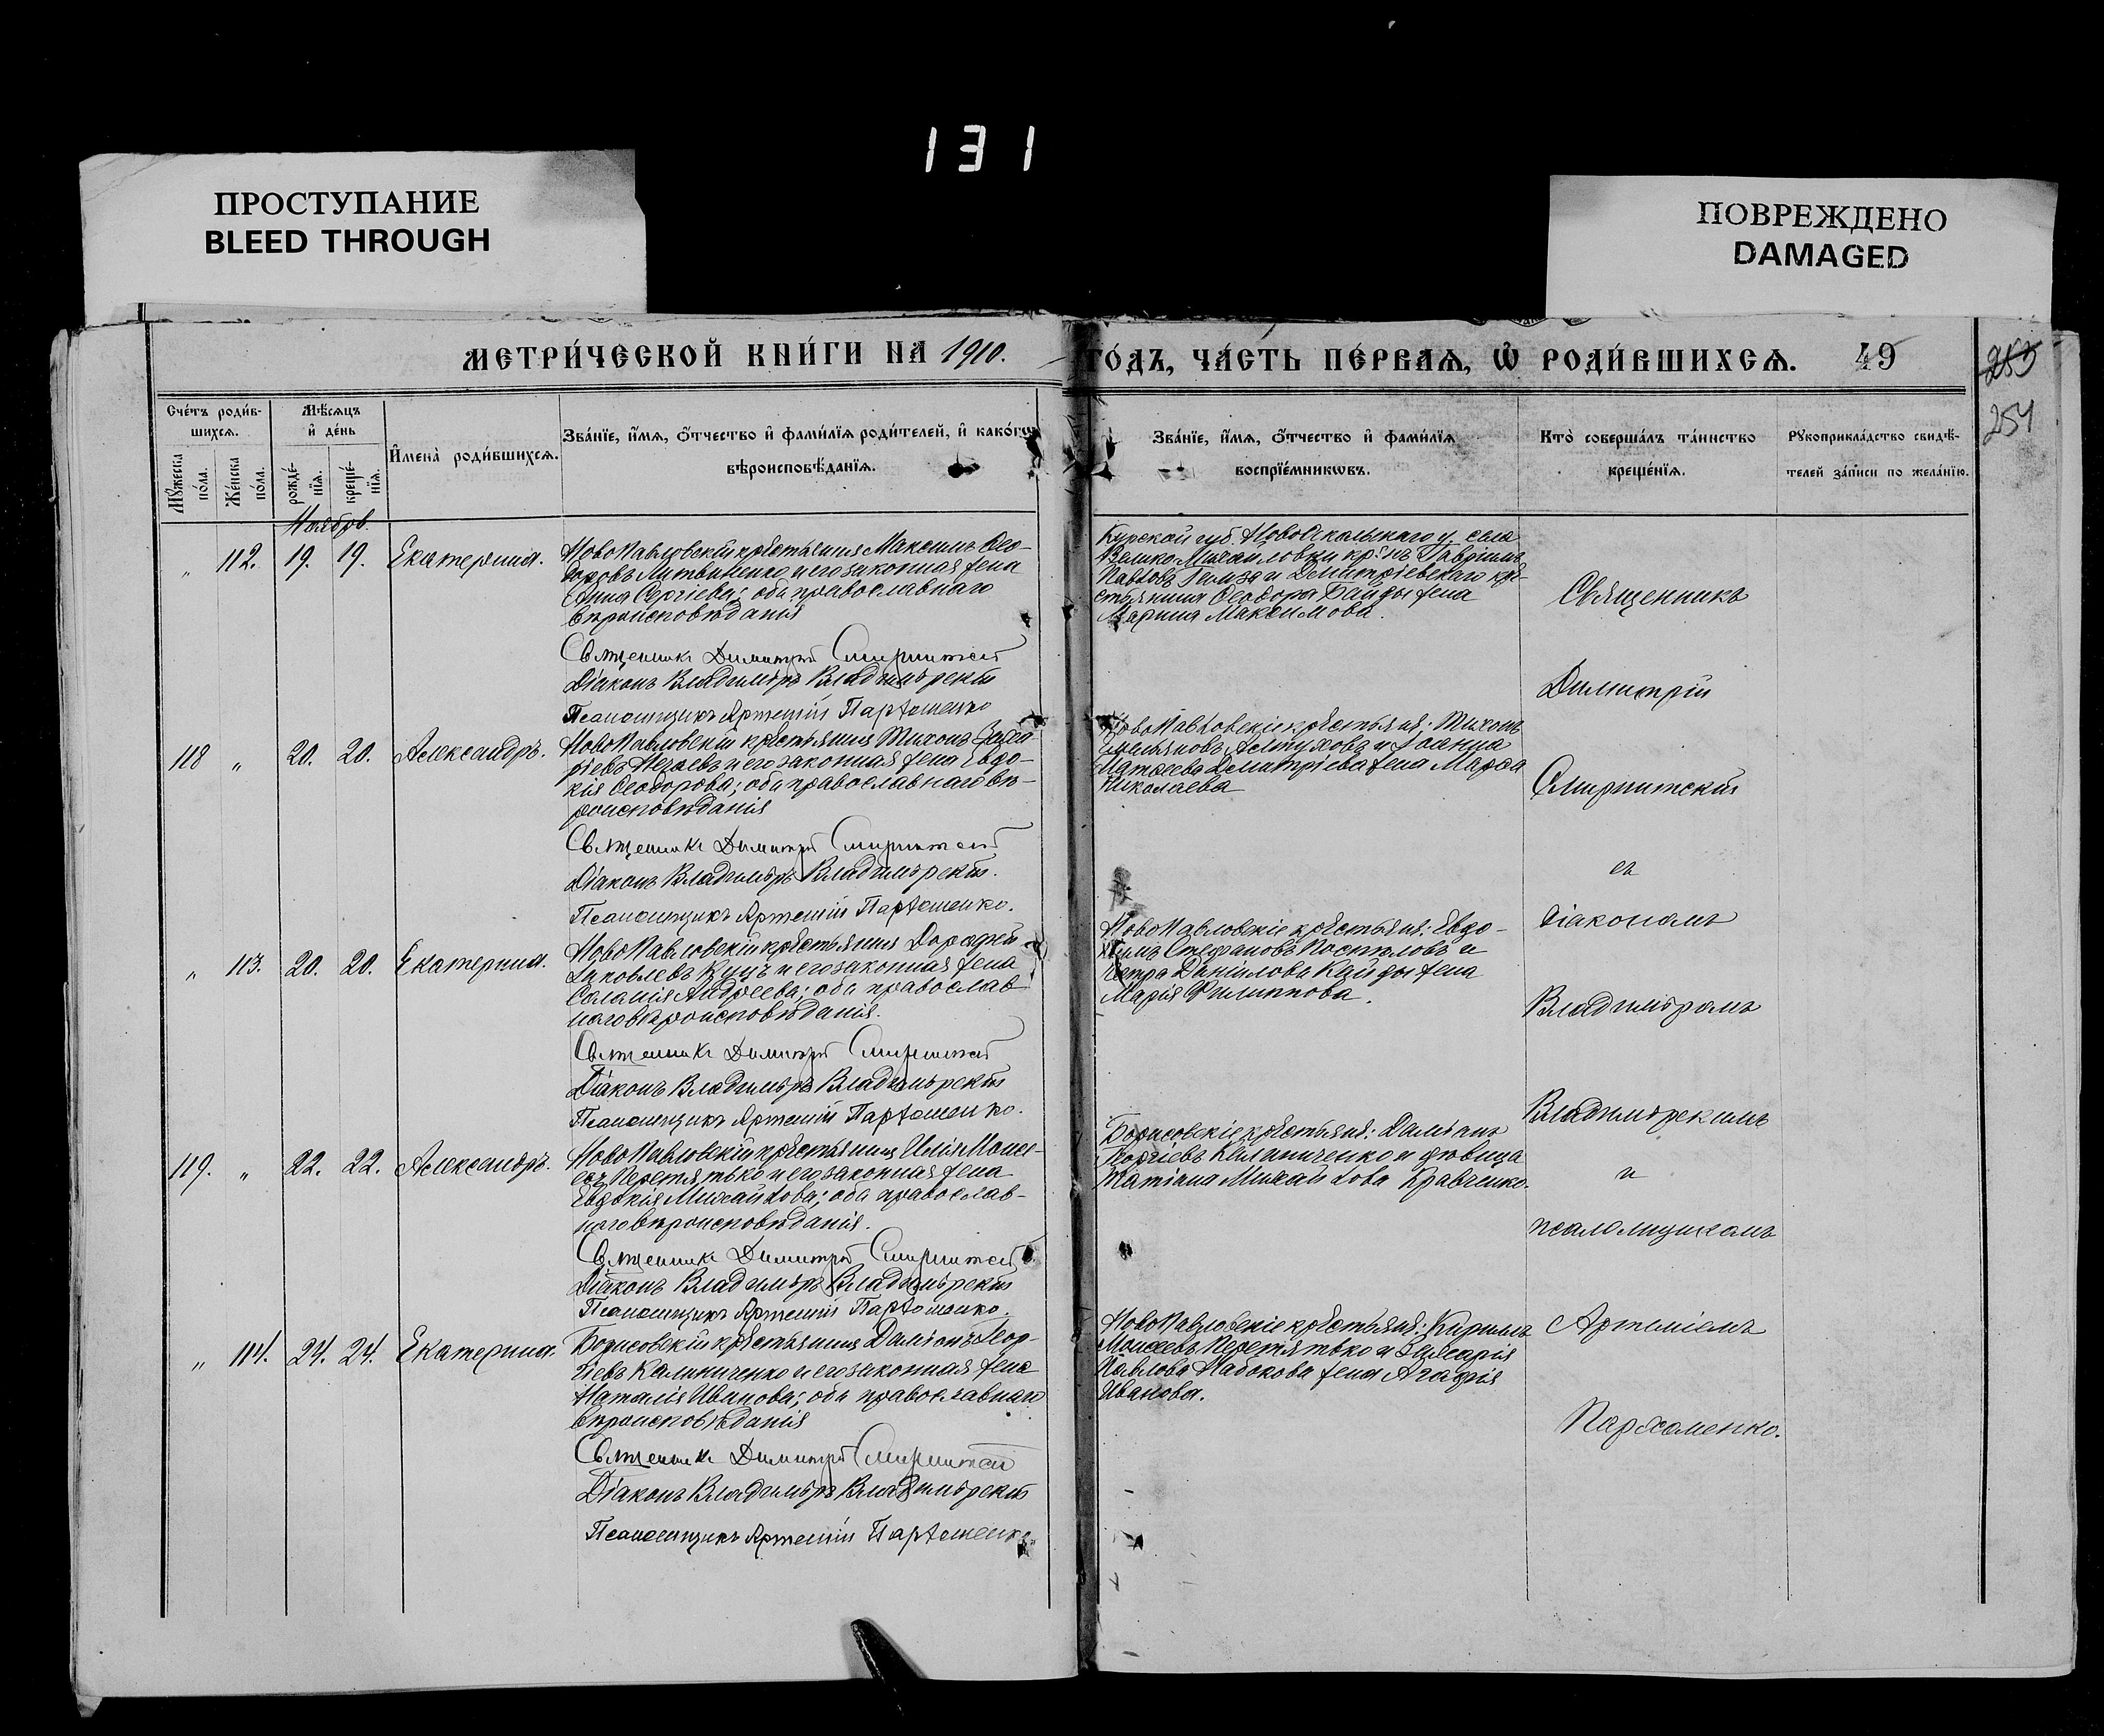 131
ПРОСТУПАНИЕ
BLEED THROUGH
ПОВРЕЖДЕНО
DAMAGED
МЕТРИ́ЧЕСКОЙ КНИ́ГИ НА 1910.
ГО́ДЪ, ЧА́СТЬ ПЕ́РВАѦ, Ѡ҆ РОДИ́ВШИХСѦ. 49
253
254
Сче́тъ роди́в-
шихсѧ.
Мꙋ́жеска по́ла.
Же́нска по́ла.
Мѣ́сѧцъ
и҆ де́нь
рожде́-
нїѧ.
креще́-
нїѧ.
И҆мена̀ роди́вшихсѧ.
Зва́нїе, и҆́мѧ, ѻ҆́тчество и҆ фами́лїѧ роди́телей, и҆ како́гѡ
вѣроисповѣ́данїѧ.
Зва́нїе, и҆́мѧ, ѻ҆́тчество и҆ фами́лїѧ
воспрїе́мниковъ.
Кто̀ соверша́лъ та́инство
креще́нїѧ.
Рꙋкоприкла́дство свидѣ́-
телей за́писи по жела́нїю.
Ноябрь.
„ 112. 19. 19. Екатерина.
Новопавловскій крестьянинъ Максимъ Ѳео-
доровъ Литвиненко и его законная жена
Анна Сергіева; оба православнаго
вѣроисповѣданія
Священникъ Димитрій Смирнитскій
Діаконъ Владиміръ Владимірскій
Псаломщикъ Артемій Пархоменко
Курской губ. Новооскольскаго у. села
Велико-Михайловки кр-нъ Гавріилъ
Павловъ и Димитріевскаго кре-
стьянина Ѳеодора Байды жена
Марина Максимова.
118 „ 20. 20. Александръ.
Новопавловскій крестьянинъ Тихонъ
и его законная жена Евдо-
кія Ѳеодорова; оба православнаго вѣ-
роисповѣданія
Священникъ Димитрій Смирнитскій
Діаконъ Владиміръ Владимірскій.
Псаломщикъ Артемій Пархоменко.
Новопавловскіе крестьяне: Тихонъ
и Іоанна
Матѳеева Димитріева жена Марѳа
Николаева
„ 113. 20. 20. Екатерина.
Новопавловскій крестьянинъ Дорофей
Яковлевъ Куцъ и его законная жена
Соломія Андреева; оба православ-
наго вѣроисповѣданія.
Священникъ Димитрій Смирнитскій
Діаконъ Владиміръ Владимірскій
Псаломщикъ Артемій Пархоменко.
Новопавловскіе крестьяне: Евдо-
кимъ Стефановъ Постоловъ и
Петра Даніилова Кайды жена
Марія Филиппова.
119. „ 22. 22. Александръ.
Новопавловскій крестьянинъ Илія Моисе-
евъ Перетятько и его законная жена
Евдокія Михайлова; оба православ-
наго вѣроисповѣданія.
Священникъ Димитрій Смирнитскій
Діаконъ Владиміръ Владимірскій
Псаломщикъ Артемій Пархоменко.
Борисовскіе крестьяне: Даміанъ
Георгіевъ Калиниченко и дѣвица
Татіана Михайлова Кравченко.
„ 114. 24. 24. Екатерина.
Борисовскій крестьянинъ Даміанъ Геор-
гіевъ Калиниченко и его законная жена
Наталія Иванова; оба православнаго
вѣроисповѣданія
Священникъ Димитрій Смирнитскій
Діаконъ Владиміръ Владимірскій
Псаломщикъ Артемій Пархоменко
Новопавловскіе крестьяне: Кириллъ
Моисеевъ Перетятько и
Павлова Набокова жена Агафія
Иванова.
Священникъ
Димитрій
Смирнитскій
съ
діакономъ
Владиміромъ
Владимірскимъ
и
псаломщикомъ
Артеміемъ
Пархоменко.